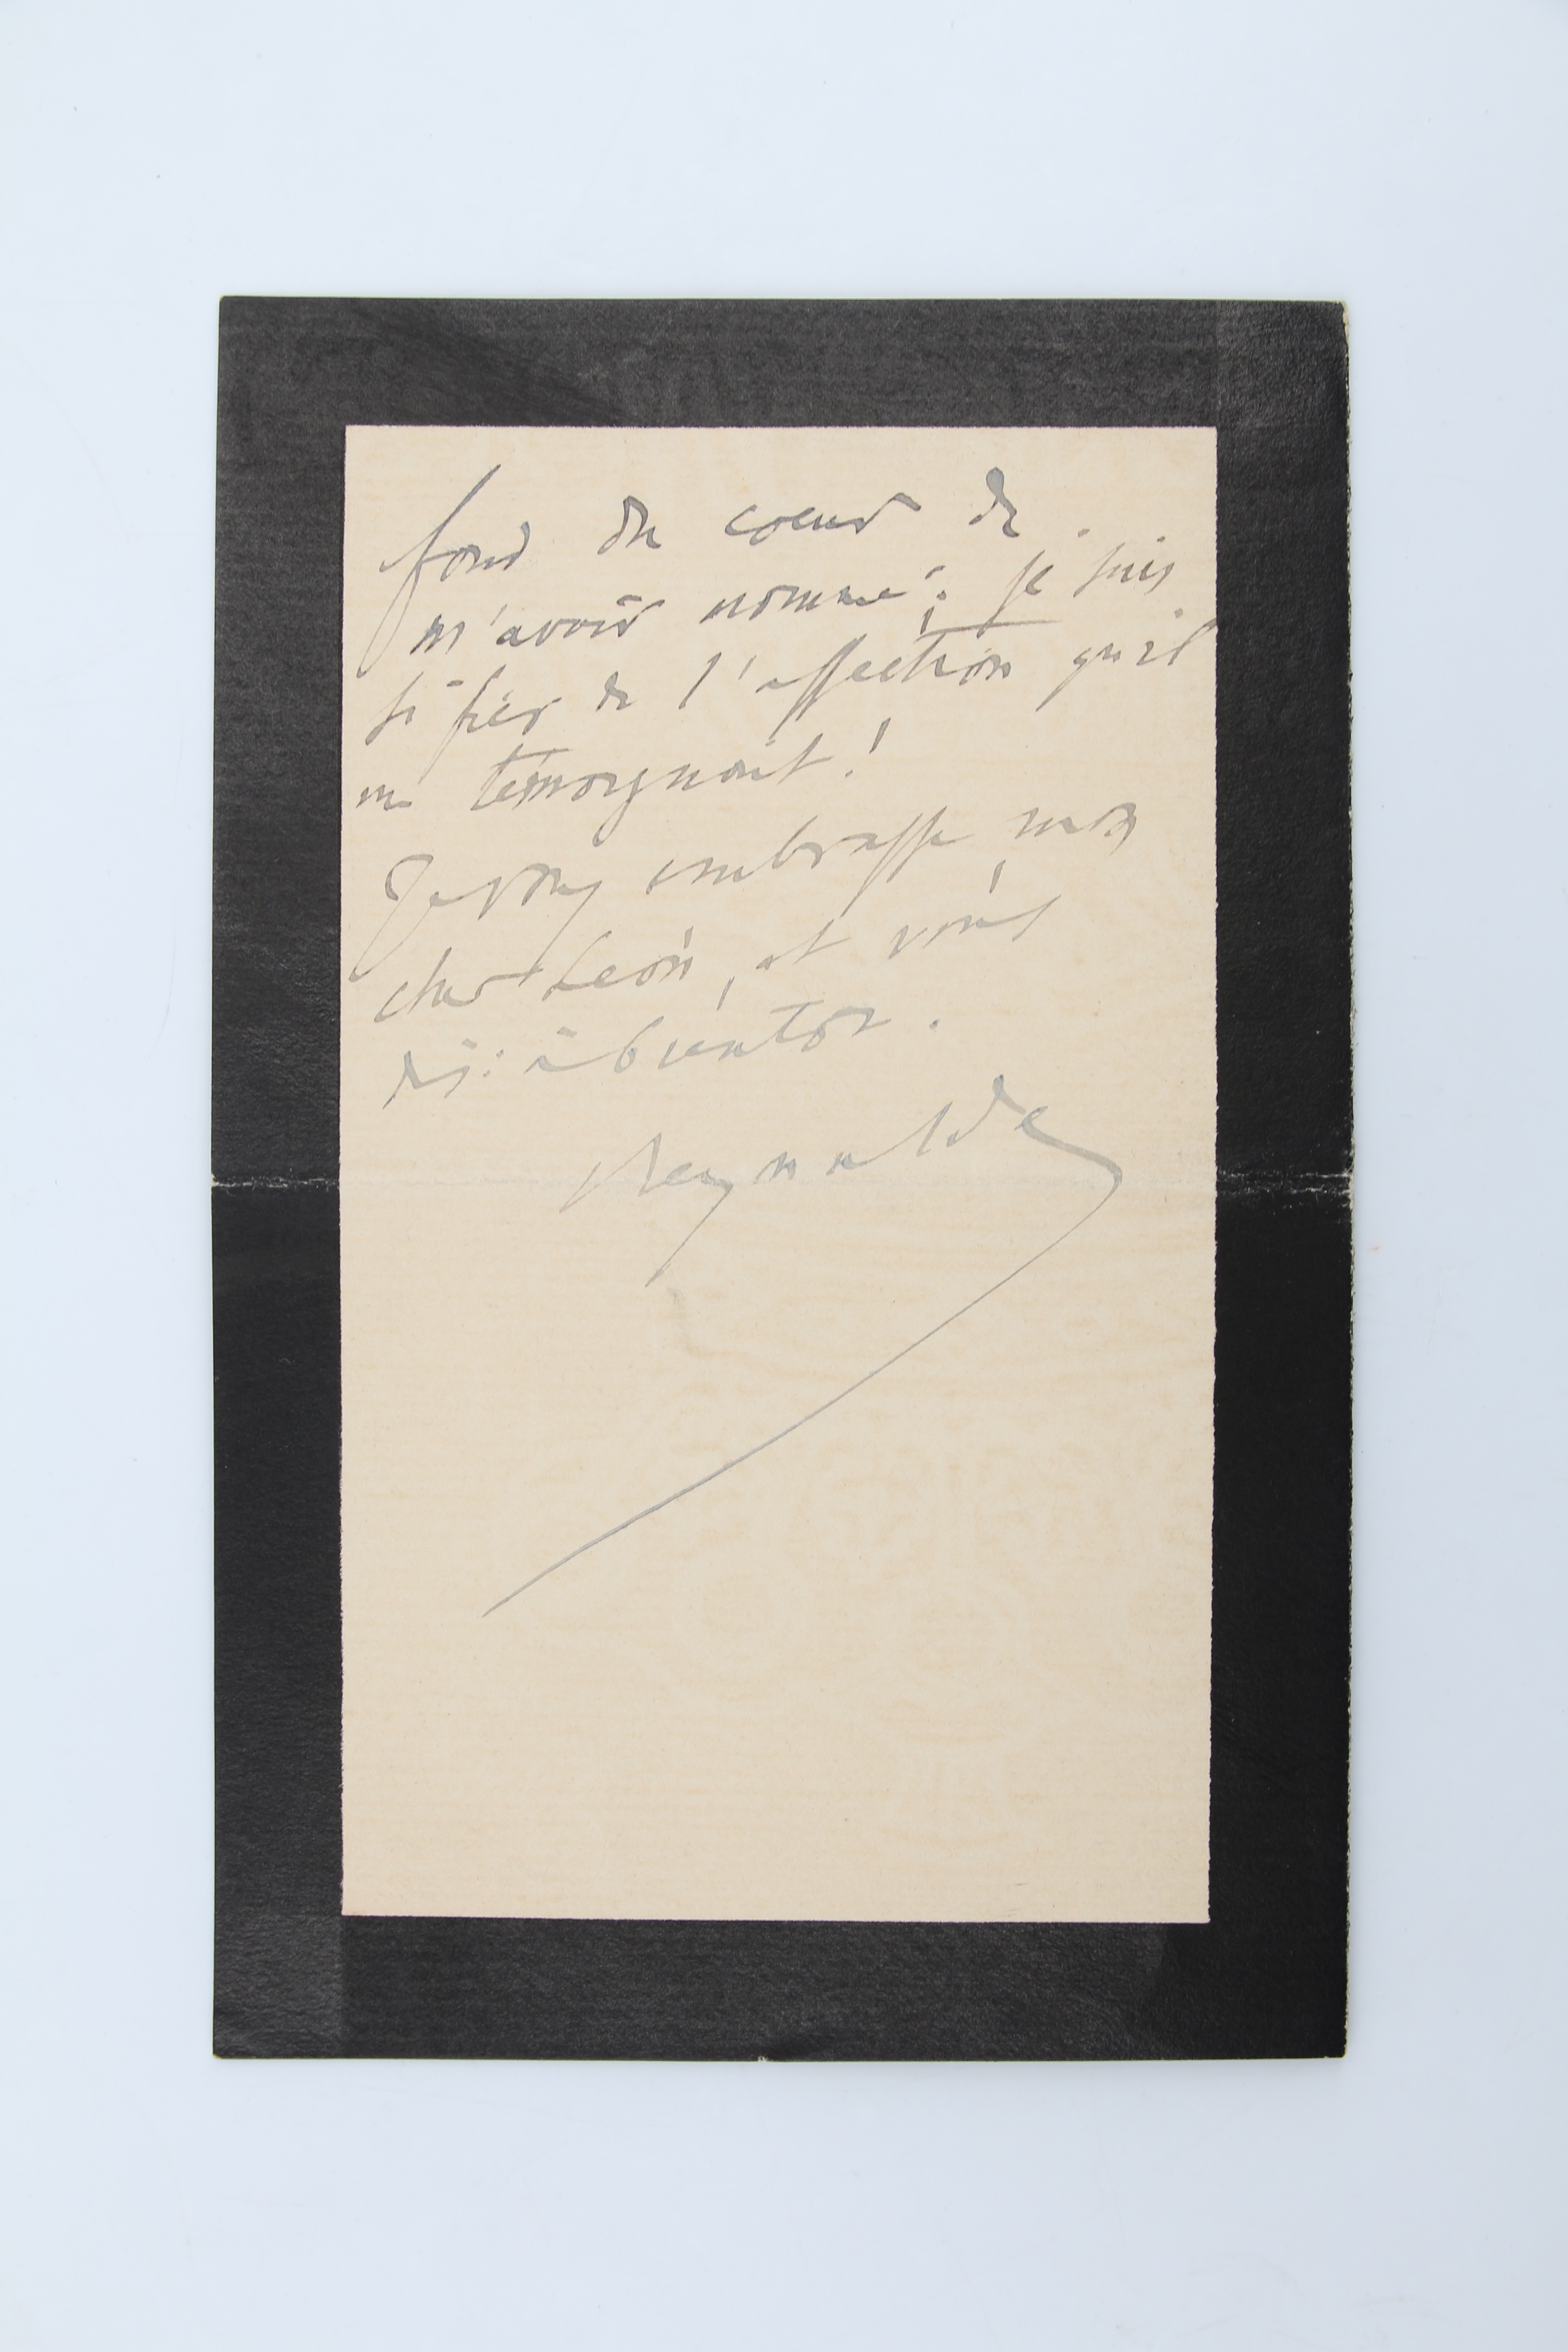 fond du coeur de
m'avoir nommé ; je suis
si fier de l'affection qu'il
me témoignait !
Je vous embrasse mon
cher Léon, et vous
dis : à bientôt.
Reynaldo